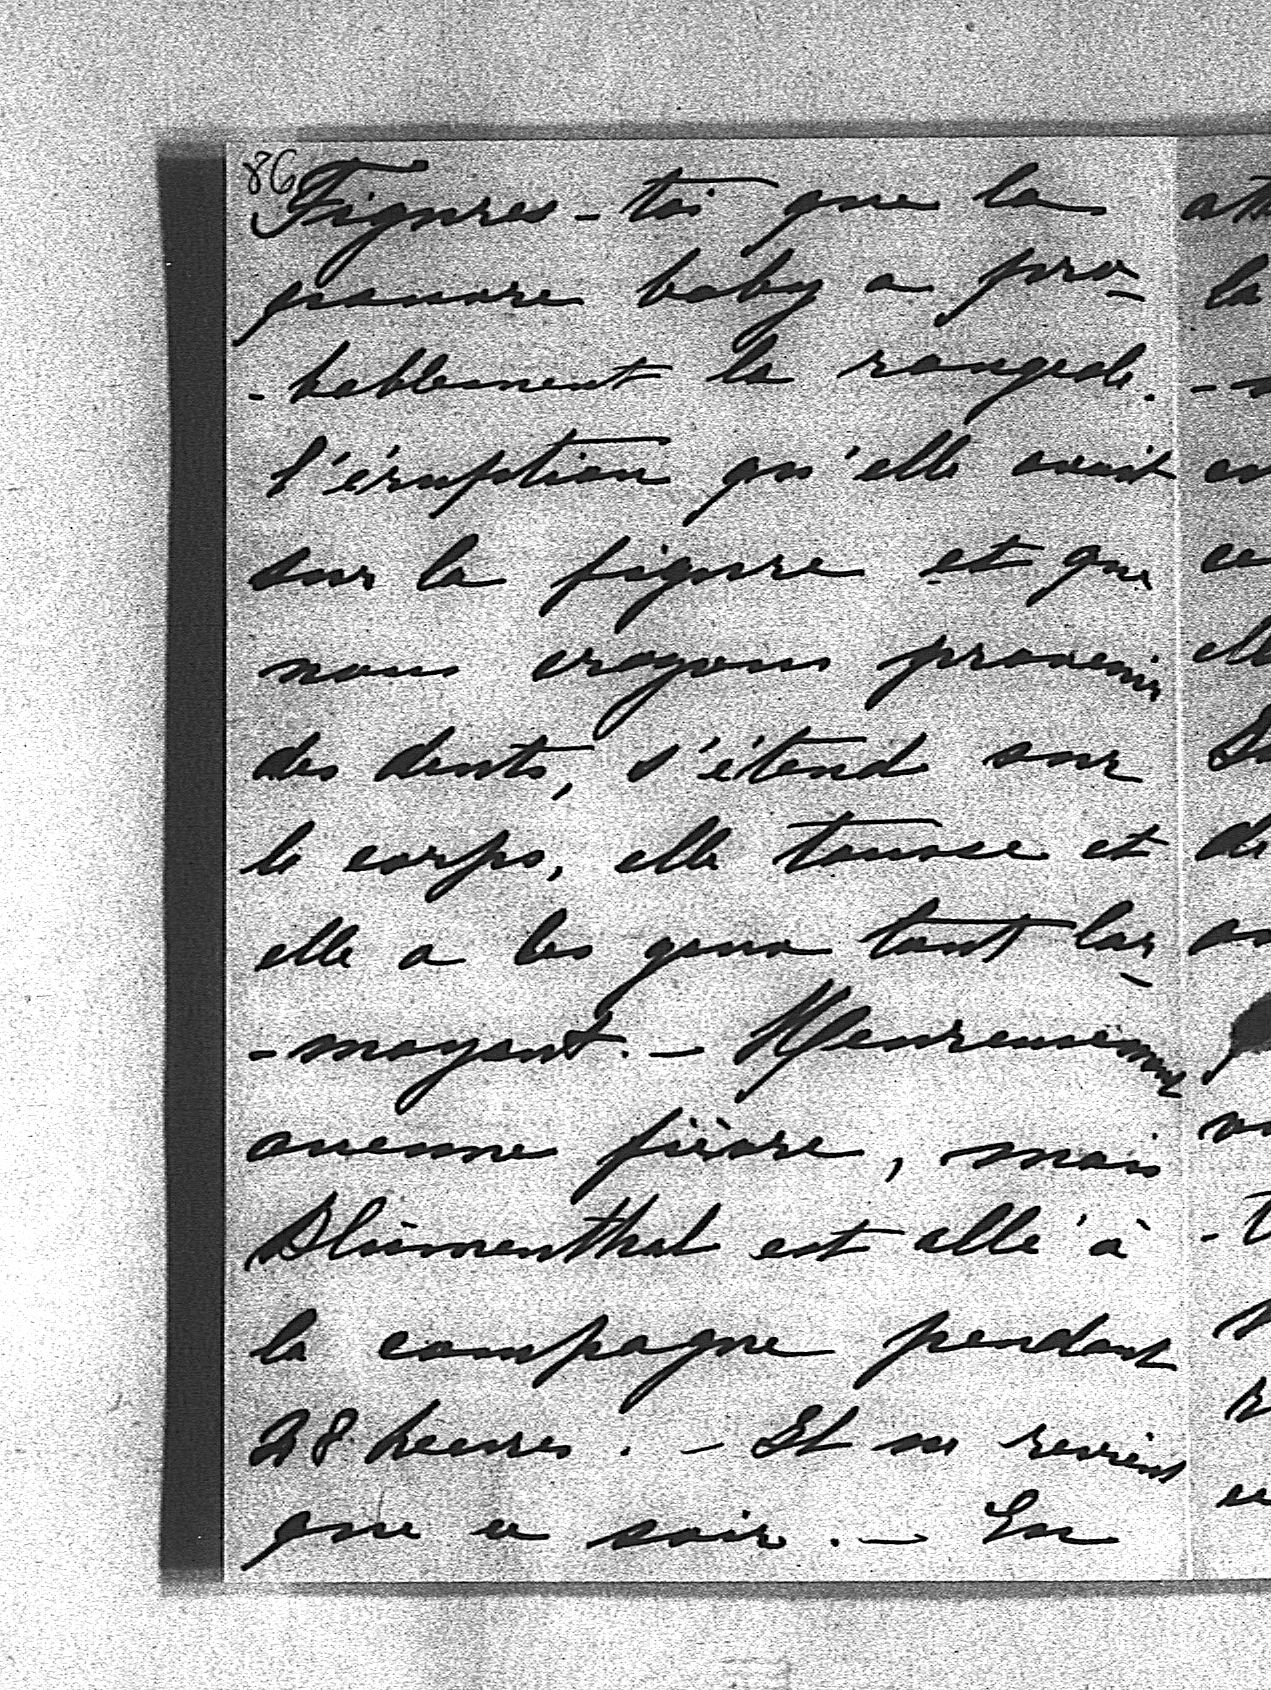 86
Figures-toi que la
pauvre baby a pro-
-bablement la rougeole.
l'éruption qu'elle avait
sur la figure et que
nous croyons provenir
des dents, s'étend sur
le corps, elle tousse et
elle a les yeux tout lar-
-moyant. - Heureusement
aucune fièvre, mais
Blumenthal est allé à
la campagne pendant
28 heures. - Et ne revient
que ce soir. - En